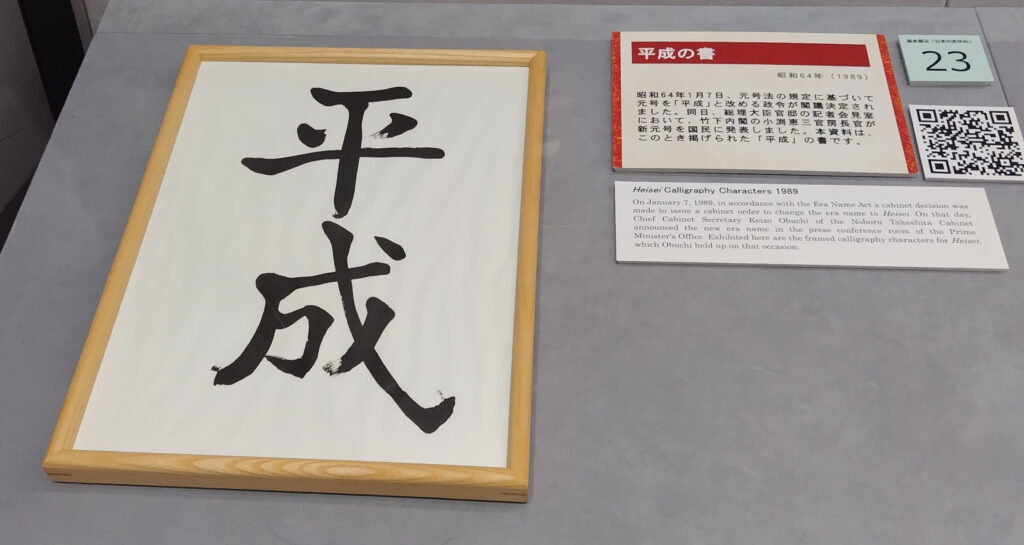 平成
平成の書
昭和64年（1989）
昭和64年1月7日、元号法の規定に基づいて
元号を「平成」と改める政令が閣議決定され
ました。同日、総理大臣官邸の記者会見室
において、竹下内閣の小渕恵三官房長官が
新元号を国民に発表しました。本資料は、
このとき掲げられた「平成」の書です。
基本展示「日本のあゆみ」
23
Heisei Calligraphy Characters 1989
On January 7, 1989, in accordance with the Era Name Act a cabinet decision was
made to issue a cabinet order to change the era name to Heisei. On that day,
Chief Cabinet Secretary Keizo Obuchi of the Noboru Takeshita Cabinet
announced the new era name in the press conference room of the Prime
Minister's Office. Exhibited here are the framed calligraphy characters for Heisei,
which Obuchi held up on that occasion.